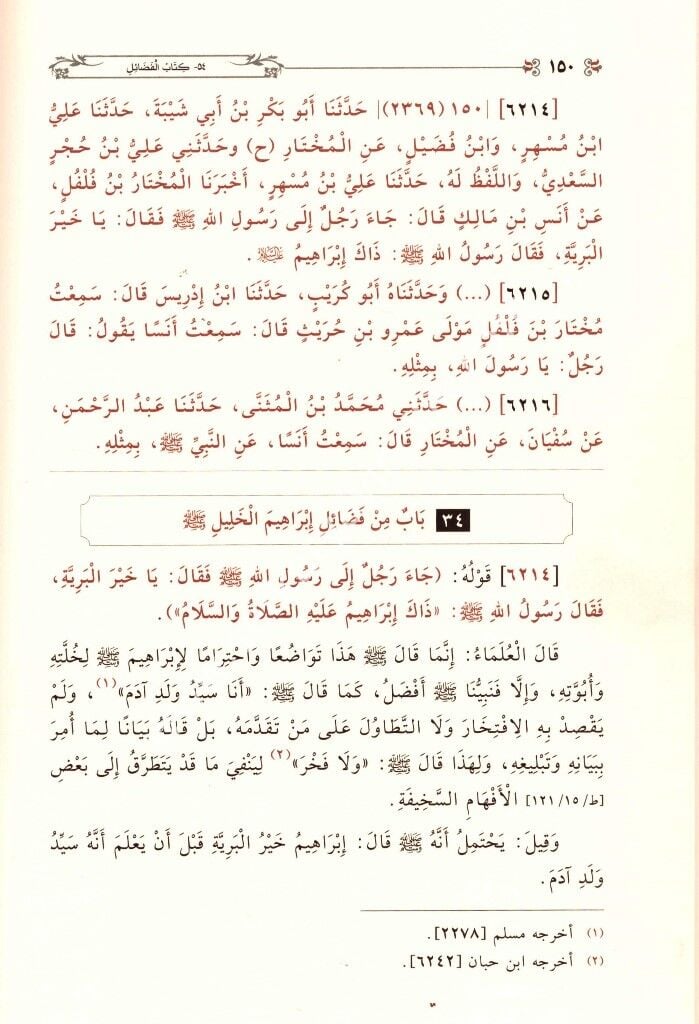 ١٥٠ ٥٤- كِتَابُ الْفَضَائِلِ
[٦٢١٤] |١٥٠ (٢٣٦٩)| حَدَّثَنَا أَبُو بَكْرِ بْنُ أَبِي شَيْبَةَ، حَدَّثَنَا عَلِيُّ
ابْنُ مُسْهِرٍ، وَابْنُ فُضَيْلٍ، عَنِ الْمُخْتَارِ (ح) وحَدَّثَنِي عَلِيُّ بْنُ حُجْرٍ
السَّعْدِيُّ، وَاللَّفْظُ لَهُ، حَدَّثَنَا عَلِيُّ بْنُ مُسْهِرٍ، أَخْبَرَنَا الْمُخْتَارُ بْنُ فُلْفُلٍ،
عَنْ أَنَسِ بْنِ مَالِكٍ قَالَ: جَاءَ رَجُلٌ إِلَى رَسُولِ اللهِ ﷺ فَقَالَ: يَا خَيْرَ
الْبَرِيَّةِ، فَقَالَ رَسُولُ اللهِ ﷺ: ذَاكَ إِبْرَاهِيمُ عَلَيْهِ السَّلَام.
[٦٢١٥] (...) وَحَدَّثَنَاهُ أَبُو كُرَيْبٍ، حَدَّثَنَا ابْنُ إِدْرِيسَ قَالَ: سَمِعْتُ
مُخْتَارَ بْنَ فُلْفُلٍ مَوْلَى عَمْرِو بْنِ حُرَيْثٍ قَالَ: سَمِعْتُ أَنَسًا يَقُولُ: قَالَ
رَجُلٌ: يَا رَسُولَ اللهِ، بِمِثْلِهِ.
[٦٢١٦] (...) حَدَّثَنِي مُحَمَّدُ بْنُ الْمُثَنَّى، حَدَّثَنَا عَبْدُ الرَّحْمَنِ،
عَنْ سُفْيَانَ، عَنِ الْمُخْتَارِ قَالَ: سَمِعْتُ أَنَسًا، عَنِ النَّبِيِّ ﷺ، بِمِثْلِهِ.
٣٤ بَابٌ مِنْ فَضَائِلِ إِبْرَاهِيمَ الْخَلِيلِ ﷺ
[٦٢١٤] قَوْلُهُ: (جَاءَ رَجُلٌ إِلَى رَسُولِ اللهِ ﷺ فَقَالَ: يَا خَيْرَ الْبَرِيَّةِ،
فَقَالَ رَسُولُ اللهِ ﷺ: «ذَاكَ إِبْرَاهِيمُ عَلَيْهِ الصَّلَاةُ وَالسَّلَامُ»).
قَالَ الْعُلَمَاءُ: إِنَّمَا قَالَ ﷺ هَذَا تَوَاضُعًا وَاحْتِرَامًا لِإِبْرَاهِيمَ ﷺ لِخُلَّتِهِ
وَأُبُوَّتِهِ، وَإِلَّا فَنَبِيُّنَا ﷺ أَفْضَلُ، كَمَا قَالَ ﷺ: «أَنَا سَيِّدُ وَلَدِ آدَمَ»(١)، وَلَمْ
يَقْصِدْ بِهِ الِافْتِخَارَ وَلَا التَّطَاوُلَ عَلَى مَنْ تَقَدَّمَهُ، بَلْ قَالَهُ بَيَانًا لِمَا أُمِرَ
بِبَيَانِهِ وَتَبْلِيغِهِ، وَلِهَذَا قَالَ ﷺ: «وَلَا فَخْرَ»(٢) لِيَنْفِيَ مَا قَدْ يَتَطَرَّقُ إِلَى بَعْضِ
[ط/١٥/١٢١] الْأَفْهَامِ السَّخِيفَةِ.
وَقِيلَ: يَحْتَمِلُ أَنَّهُ ﷺ قَالَ: إِبْرَاهِيمُ خَيْرُ الْبَرِيَّةِ قَبْلَ أَنْ يَعْلَمَ أَنَّهُ سَيِّدُ
وَلَدِ آدَمَ.
(١) أخرجه مسلم [٢٢٧٨].
(٢) أخرجه ابن حبان [٦٢٤٢].